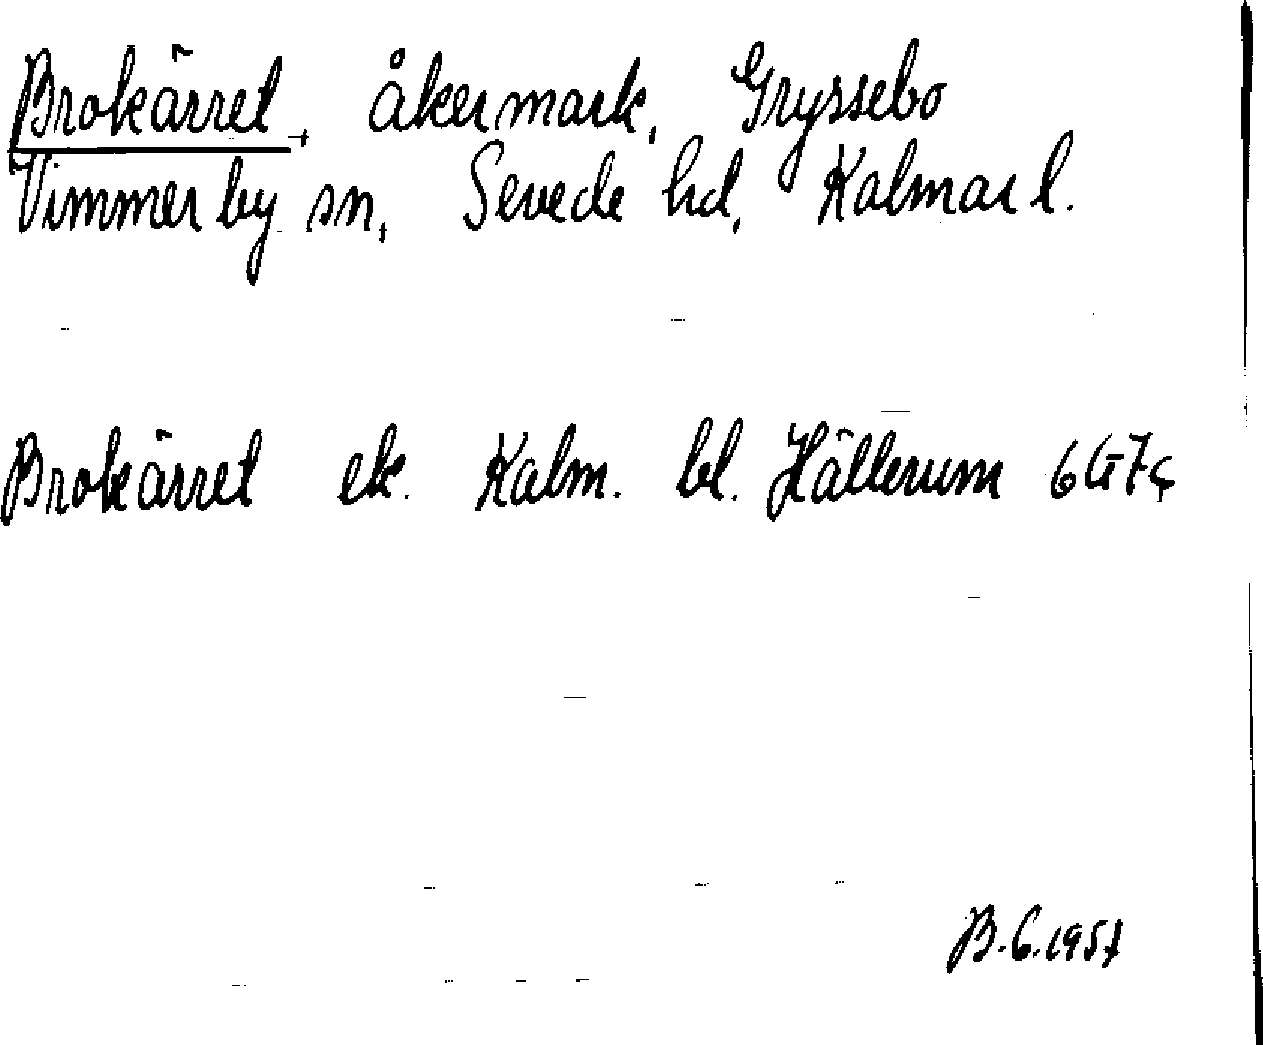 Brokärret, åkermark, Gryssebo
Vimmerby sn, Sevede hd, Kalmar l.
Brokärret ek. Kalm. bl. Hällerum 6G7c
B.C.1957